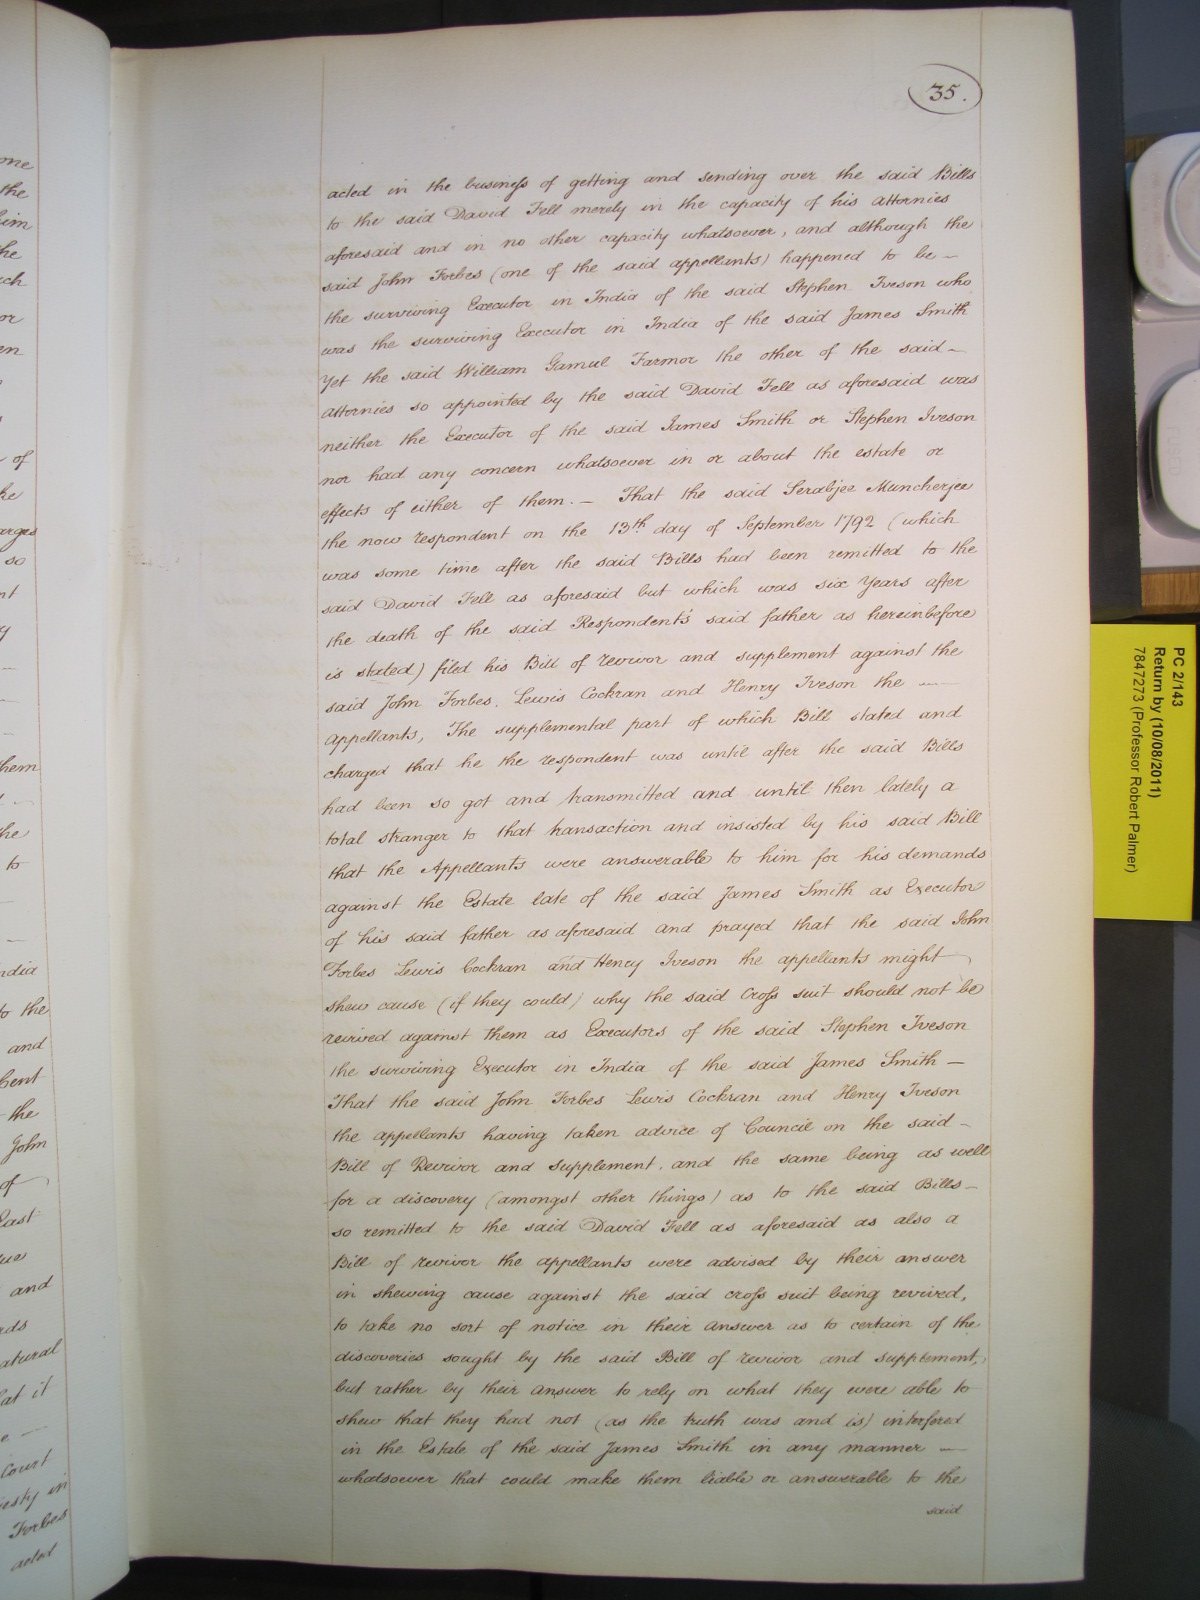 35.
acted in the business of getting and sending over the said Bills
to the said David Fell merely in the capacity of his attornies
aforesaid and in no other capacity whatsoever, and although the
said John Forbes (one of the said appellants) happened to be —
the surviving Executor in India of the said Stephen Iveson who
was the surviving Executor in India of the said James Smith
Yet the said William Gamul Farmor the other of the said —
attornies so appointed by the said David Fell as aforesaid was
neither the Executor of the said James Smith or Stephen Iveson
nor had any concern whatsoever in or about the estate or
effects of either of them. — That the said Serabjee Muncherjee
the now respondent on the 13th day of September 1792 (which
was some time after the said Bills had been remitted to the
said David Fell as aforesaid but which was six Years after
the death of the said Respondent's said father as hereinbefore
is stated) filed his Bill of revivor and supplement against the
said John Forbes, Lewis Cockran and Henry Iveson the —
appellants, The supplemental part of which Bill stated and
charged that he the respondent was until after the said Bills
had been so got and transmitted and until then lately a
total stranger to that transaction and insisted by his said Bill
that the Appellants were answerable to him for his demands
against the Estate late of the said James Smith as Executor
of his said father as aforesaid and prayed that the said John
Forbes Lewis Cockran and Henry Iveson the appellants might
shew cause (if they could) why the said Cross suit should not be
revived against them as Executors of the said Stephen Iveson
the surviving Executor in India of the said James Smith —
That the said John Forbes Lewis Cockran and Henry Iveson
the appellants having taken advice of Council on the said —
Bill of Revivor and supplement, and the same being as well
for a discovery (amongst other things) as to the said Bills —
so remitted to the said David Fell as aforesaid as also a
Bill of revivor the appellants were advised by their answer
in shewing cause against the said cross suit being revived,
to take no sort of notice in their answer as to certain of the
discoveries sought by the said Bill of revivor and supplement,
but rather by their answer to rely on what they were able to
shew that they had not (as the truth was and is) interfered
in the Estate of the said James Smith in any manner —
whatsoever that could make them liable or answerable to the
said
PC 2/143
Return by (10/08/2011)
7847273 (Professor Robert Palmer)
one
the
him
the
or
en
of
arges
so
nt
them
to
ndia
to the
and
the
John
of
East
and
rds
atural
at it
Court
jesty in
Forbes
acted